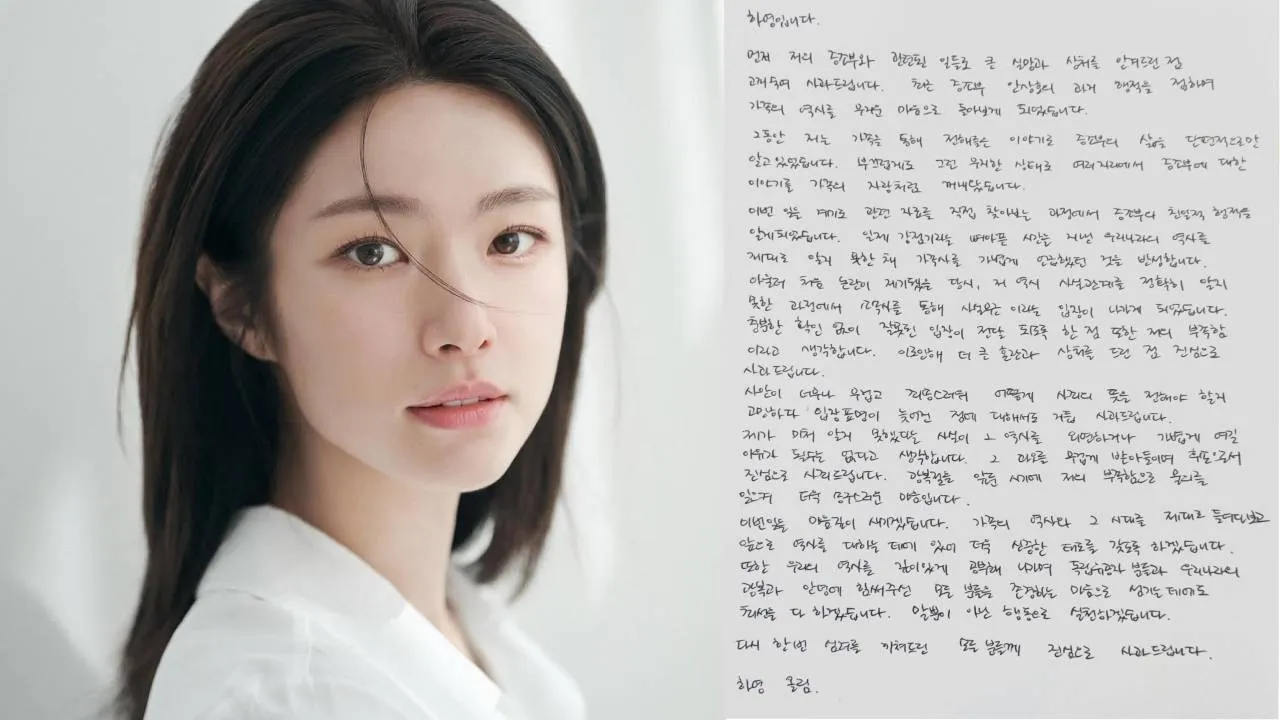 하영입니다.
먼저 저의 증조부와 관련된 일들로 큰 실망과 상처를 안겨드린 점
고개숙여 사과드립니다. 최근 증조부 안상호의 과거 행적을 접하며
가족의 역사를 무거운 마음으로 돌아보게 되었습니다.
그동안 저는 가족을 통해 전해들은 이야기로 증조부의 삶을 단편적으로만
알고 있었습니다. 부끄럽게도 그런 무지한 상태로 여러자리에서 증조부에 대한
이야기를 가족의 자랑처럼 꺼내왔습니다.
이번 일을 계기로 관련 자료를 직접 찾아보는 과정에서 증조부의 친일적 행적을
알게되었습니다. 일제 강점기라는 뼈아픈 시간을 지낸 우리나라의 역사를
제대로 알지 못한 채 가족사를 가볍게 언급했던 것을 반성합니다.
아울러 처음 논란이 제기됐을 당시, 저 역시 사실관계를 정확히 알지
못한 과정에서 소속사를 통해 사실무근 이라는 입장이 나가게 되었습니다.
충분한 확인 없이 잘못된 입장이 전달 되도록 한 점 또한 저의 부족함
이라고 생각합니다. 이로인해 더 큰 혼란과 상처를 드린 점 진심으로
사과드립니다.
사안이 너무나 무겁고 죄송스러워 어떻게 사죄의 뜻을 전해야 할지
고민하다 입장표명이 늦어진 점에 대해서도 거듭 사과드립니다.
제가 미처 알지 못했다는 사실이 그 역사를 외면하거나 가볍게 여길
이유가 될수는 없다고 생각합니다. 그 과오를 무겁게 받아들이며 후손으로서
진심으로 사죄드립니다. 광복절을 앞둔 시기에 저의 부족함으로 물의를
일으켜 더욱 송구스러운 마음입니다.
이번일을 마음깊이 새기겠습니다. 가족의 역사와 그 시대를 제대로 들여다보고
앞으로 역사를 대하는 데에 있어 더욱 신중한 태도를 갖도록 하겠습니다.
또한 우리의 역사를 깊이있게 공부해 나가며 독립유공자 분들과 우리나라의
광복과 안녕에 힘써주신 모든 분들을 존경하는 마음으로 섬기는데에도
최선을 다 하겠습니다. 말뿐이 아닌 행동으로 실천하겠습니다.
다시 한번 심려를 끼쳐드린 모든 분들께 진심으로 사과드립니다.
하영 올림.